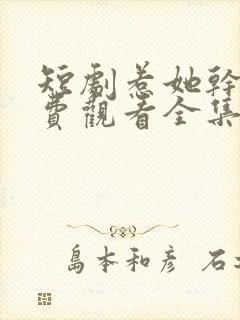 短劇惹她幹
費觀看全集
島本和彥 石